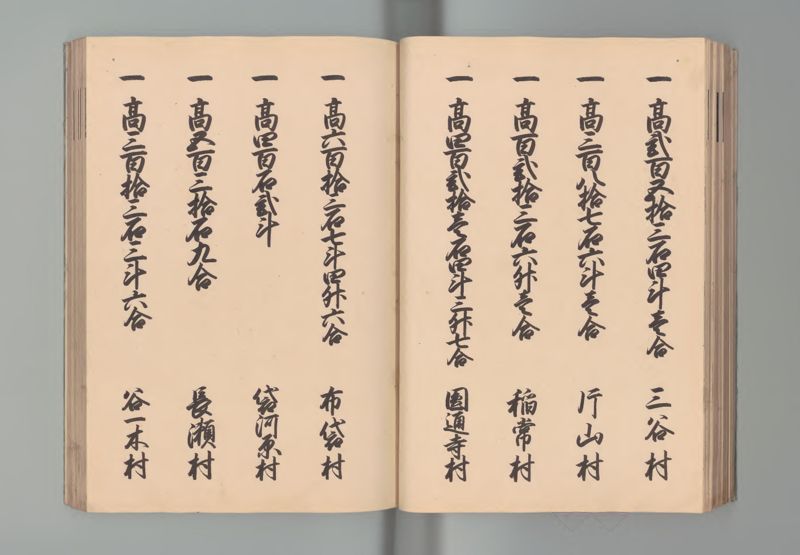 一 高弐百五拾三石四斗壱合 三谷村
一 高三百八拾七石六斗壱合 片山村
一 高百弐拾三石六升壱合 稲常村
一 高四百弐拾壱石四斗三升七合 圓通寺村
一 高六百拾三石七斗四升六合 布袋村
一 高四百石弐斗 袋河原村
一 高五百三拾石九合 長瀬村
一 高三百拾三石三斗六合 谷一木村